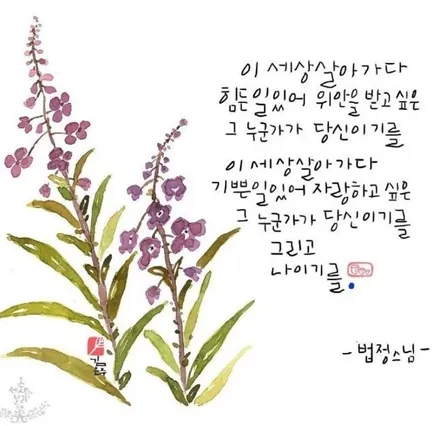 이 세상살아가다
힘든일있어 위안을 받고싶은
그 누군가가 당신이기를
이 세상살아가다
기쁜일있어 자랑하고 싶은
그 누군가가 당신이기를
그리고
나이기를.
-법정스님-